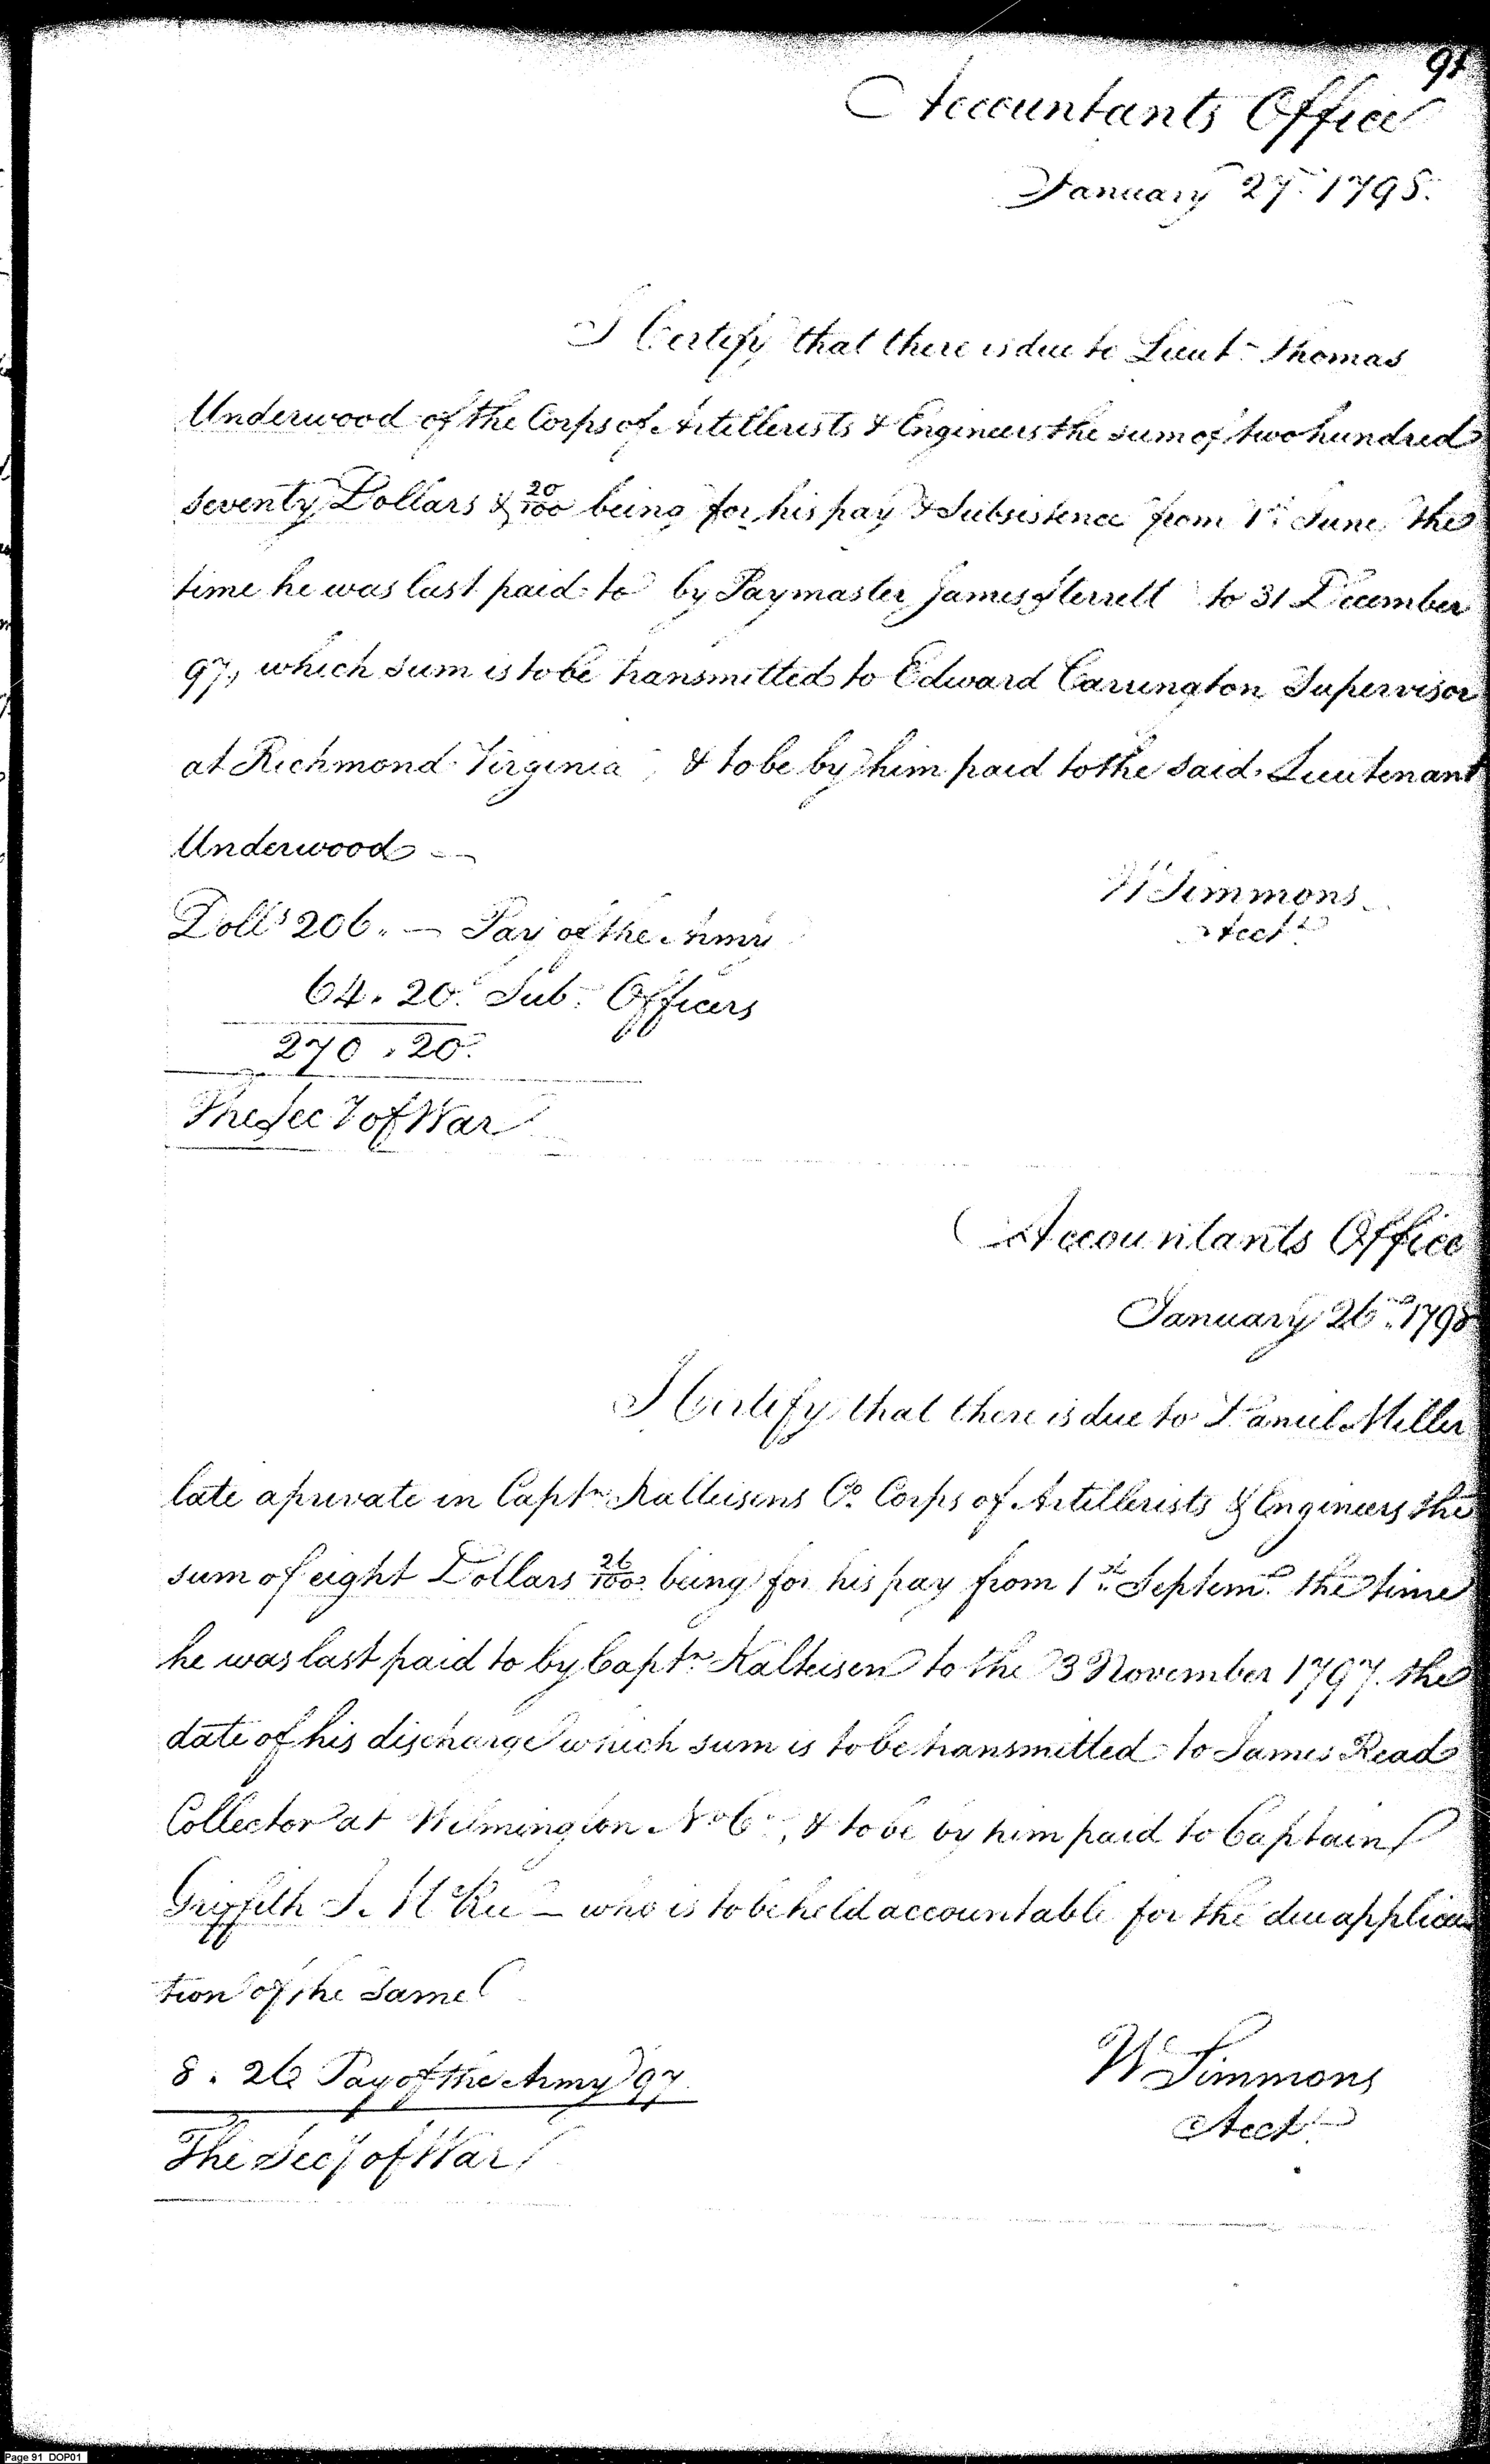 91
Accountants Office
January 27. 1798.
I Certify that there is due to Lieut. Thomas
Underwood of the Corps of Artillerists & Engineers the sum of two hundred
seventy Dollars & 20/100 being for his pay & Subsistence from 1st June the
time he was last paid to by Paymaster James Sterrett to 31 December
97, which sum is to be transmitted to Edward Carrington Supervisor
at Richmond Virginia, & to be by him paid to the said Lieutenant
Underwood
W Simmons
Acct
Dolls 206. — Pay of the Army
64. 20. Sub. Officers
270. 20.
The Secy of War
Accountants Office
January 26th 1798
I Certify that there is due to Daniel Miller
late a private in Captn Kalteisens Co. Corps of Artillerists & Engineers the
sum of eight Dollars 26/100 being for his pay from 1st Septemr the time
he was last paid to by Captn Kalteisen to the 3 November 1797. the
date of his discharge which sum is to be transmitted to James Read
Collector at Wilmington No Ca, & to be by him paid to Captain
Griffith J. McRee — who is to be held accountable for the due applica
tion of the same
8. 26 Pay of the Army 97.
W Simmons
Acct
The Secy of War
Page 91 DOP01